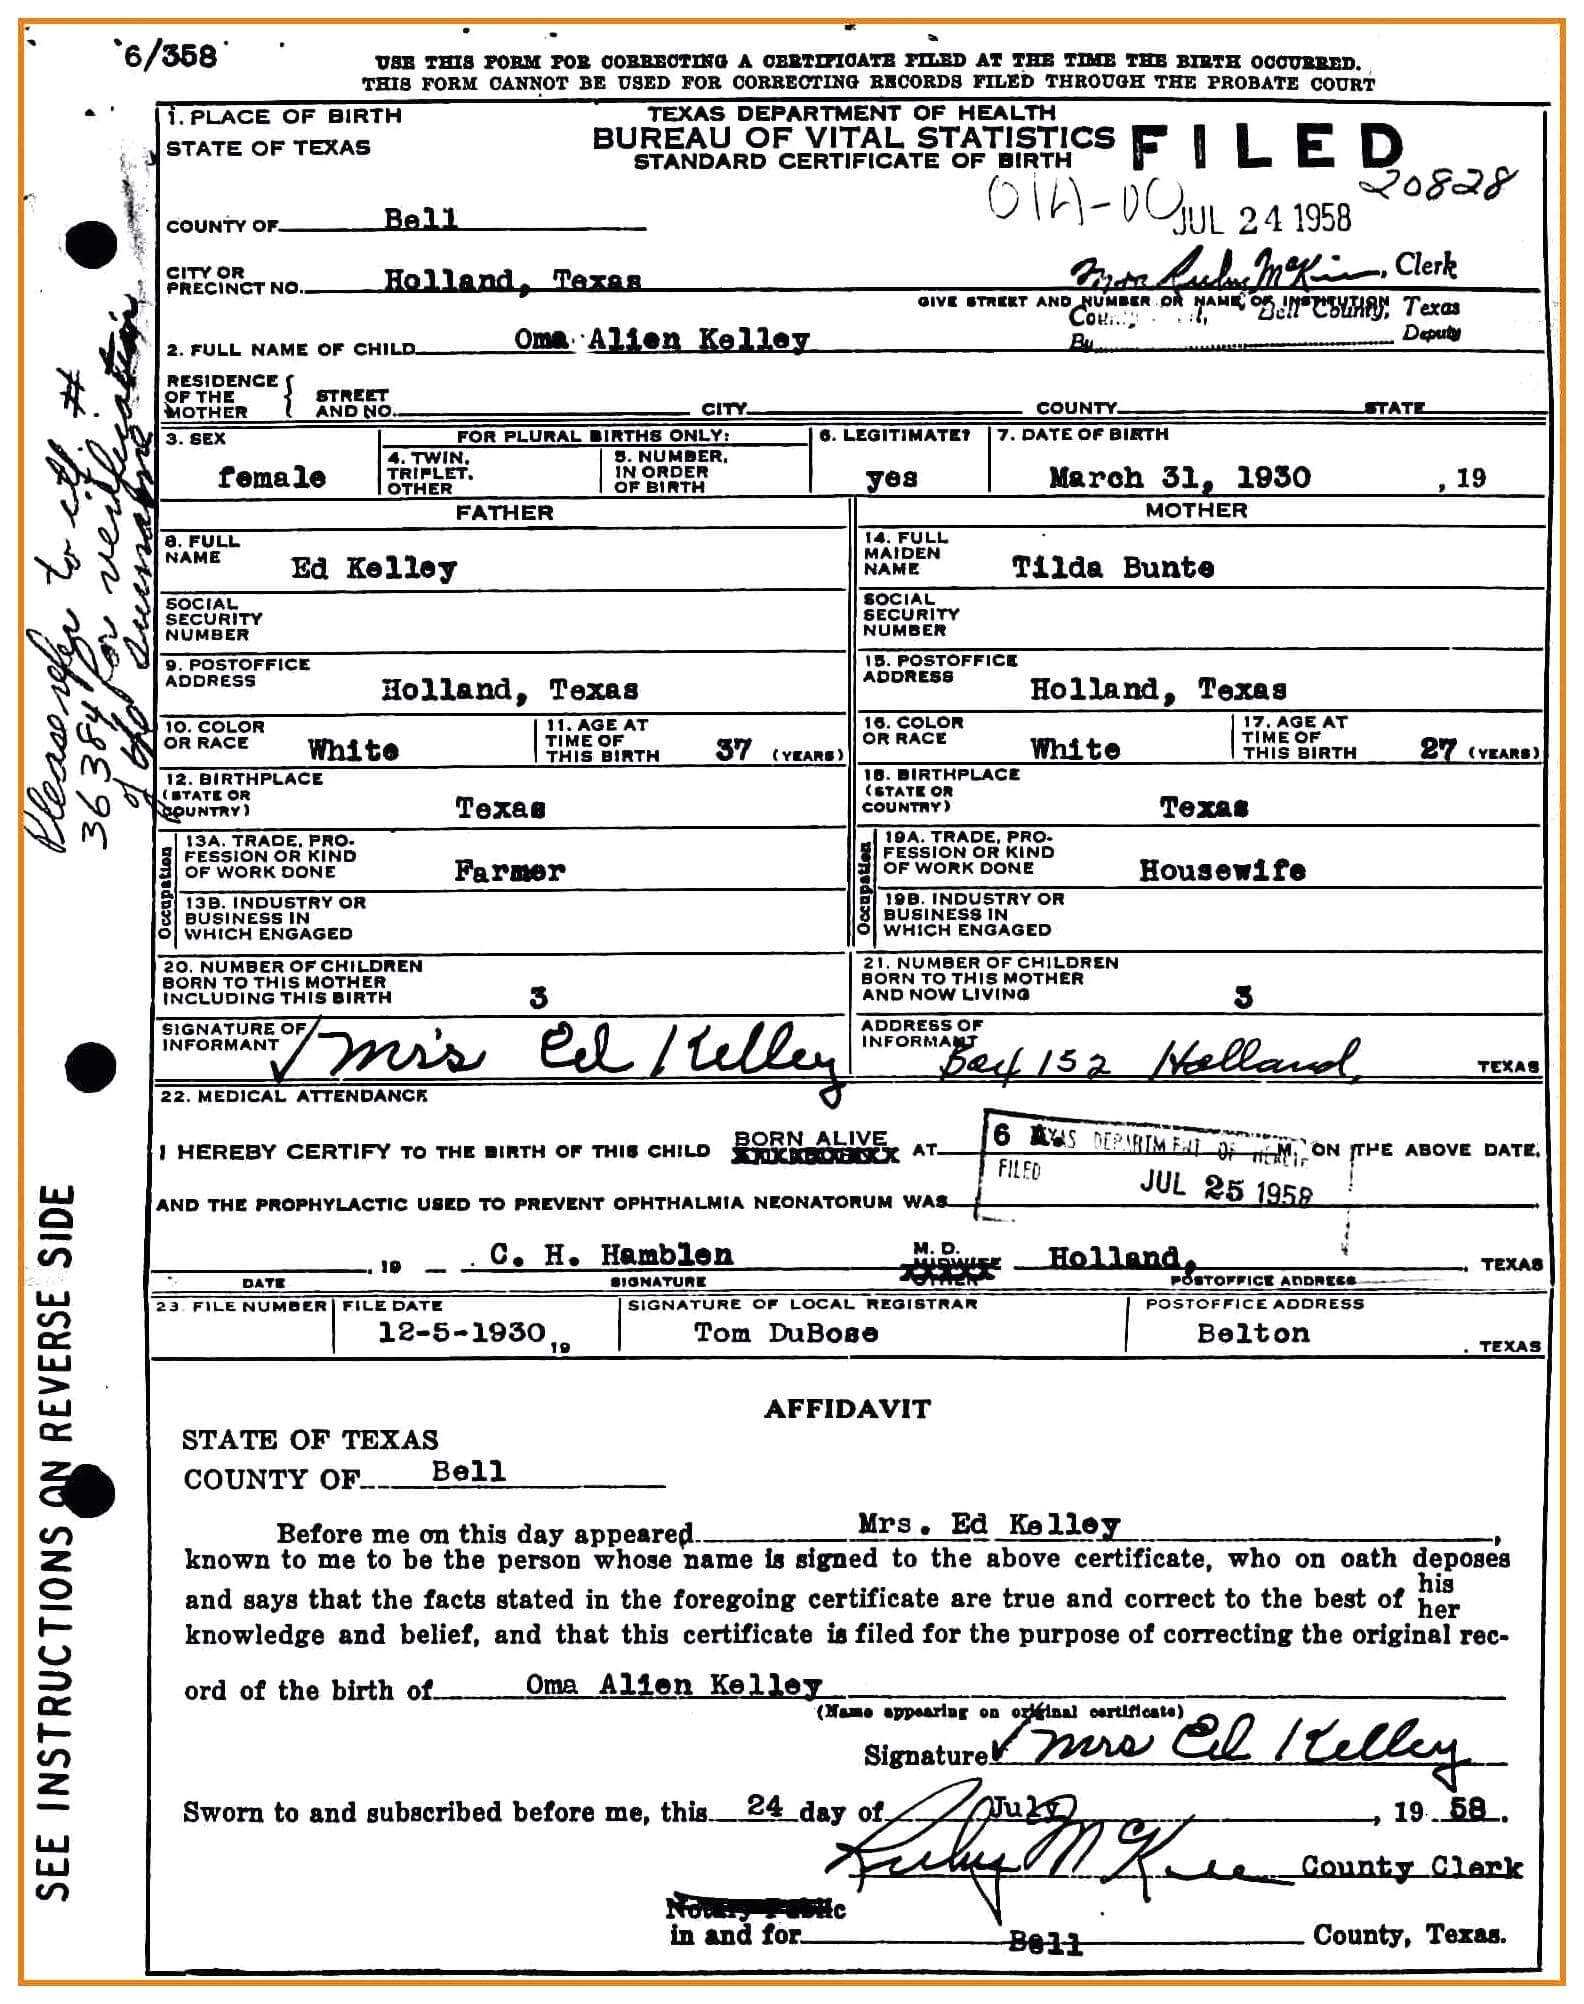 6/358
USE THIS FORM FOR CORRECTING A CERTIFICATE FILED AT THE TIME THE BIRTH OCCURRED.
THIS FORM CANNOT BE USED FOR CORRECTING RECORDS FILED THROUGH THE PROBATE COURT
1. PLACE OF BIRTH
STATE OF TEXAS
TEXAS DEPARTMENT OF HEALTH
BUREAU OF VITAL STATISTICS
STANDARD CERTIFICATE OF BIRTH
FILED
20828
JUL 24 1958
COUNTY OF Bell
CITY OR
PRECINCT NO. Holland, Texas
Mrs Ruby McKee, Clerk
GIVE STREET AND NUMBER OR NAME OF INSTITUTION
Bell County, Texas
By Deputy
2. FULL NAME OF CHILD Oma Alien Kelley
RESIDENCE
OF THE
MOTHER
STREET
AND NO. CITY COUNTY STATE
3. SEX
female
FOR PLURAL BIRTHS ONLY:
4. TWIN,
TRIPLET,
OTHER
5. NUMBER,
IN ORDER
OF BIRTH
6. LEGITIMATE?
yes
7. DATE OF BIRTH
March 31, 1930 , 19
FATHER
MOTHER
8. FULL
NAME
Ed Kelley
14. FULL
MAIDEN
NAME
Tilda Bunte
SOCIAL
SECURITY
NUMBER
SOCIAL
SECURITY
NUMBER
9. POSTOFFICE
ADDRESS
Holland, Texas
15. POSTOFFICE
ADDRESS
Holland, Texas
10. COLOR
OR RACE
White
11. AGE AT
TIME OF
THIS BIRTH 37 (YEARS)
16. COLOR
OR RACE
White
17. AGE AT
TIME OF
THIS BIRTH 27 (YEARS)
12. BIRTHPLACE
(STATE OR
COUNTRY)
Texas
18. BIRTHPLACE
(STATE OR
COUNTRY)
Texas
Occupation
13A. TRADE, PRO-
FESSION OR KIND
OF WORK DONE
Farmer
13B. INDUSTRY OR
BUSINESS IN
WHICH ENGAGED
Occupation
19A. TRADE, PRO-
FESSION OR KIND
OF WORK DONE
Housewife
19B. INDUSTRY OR
BUSINESS IN
WHICH ENGAGED
20. NUMBER OF CHILDREN
BORN TO THIS MOTHER
INCLUDING THIS BIRTH 3
21. NUMBER OF CHILDREN
BORN TO THIS MOTHER
AND NOW LIVING 3
SIGNATURE OF
INFORMANT Mrs Ed Kelley
ADDRESS OF
INFORMANT Box 152 Holland, TEXAS
22. MEDICAL ATTENDANCE
I HEREBY CERTIFY TO THE BIRTH OF THIS CHILD BORN ALIVE AT 6 A. M. ON THE ABOVE DATE,
TEXAS DEPARTMENT OF HEALTH
FILED
JUL 25 1958
AND THE PROPHYLACTIC USED TO PREVENT OPHTHALMIA NEONATORUM WAS
, 19 C. H. Hamblen M. D. Holland, TEXAS
MIDWIFE
OTHER
DATE SIGNATURE POSTOFFICE ADDRESS
23. FILE NUMBER
FILE DATE
12-5-1930 19
SIGNATURE OF LOCAL REGISTRAR
Tom DuBose
POSTOFFICE ADDRESS
Belton , TEXAS
AFFIDAVIT
STATE OF TEXAS
COUNTY OF Bell
Before me on this day appeared Mrs. Ed Kelley,
known to me to be the person whose name is signed to the above certificate, who on oath deposes
and says that the facts stated in the foregoing certificate are true and correct to the best of his
her
knowledge and belief, and that this certificate is filed for the purpose of correcting the original rec-
ord of the birth of Oma Alien Kelley
(Name appearing on original certificate)
Signature Mrs Ed Kelley
Sworn to and subscribed before me, this 24 day of July, 19 58.
Ruby McKee County Clerk
Notary Public
in and for Bell County, Texas.
Please refer to ctf. #
36384 for verification
of the surname
SEE INSTRUCTIONS ON REVERSE SIDE